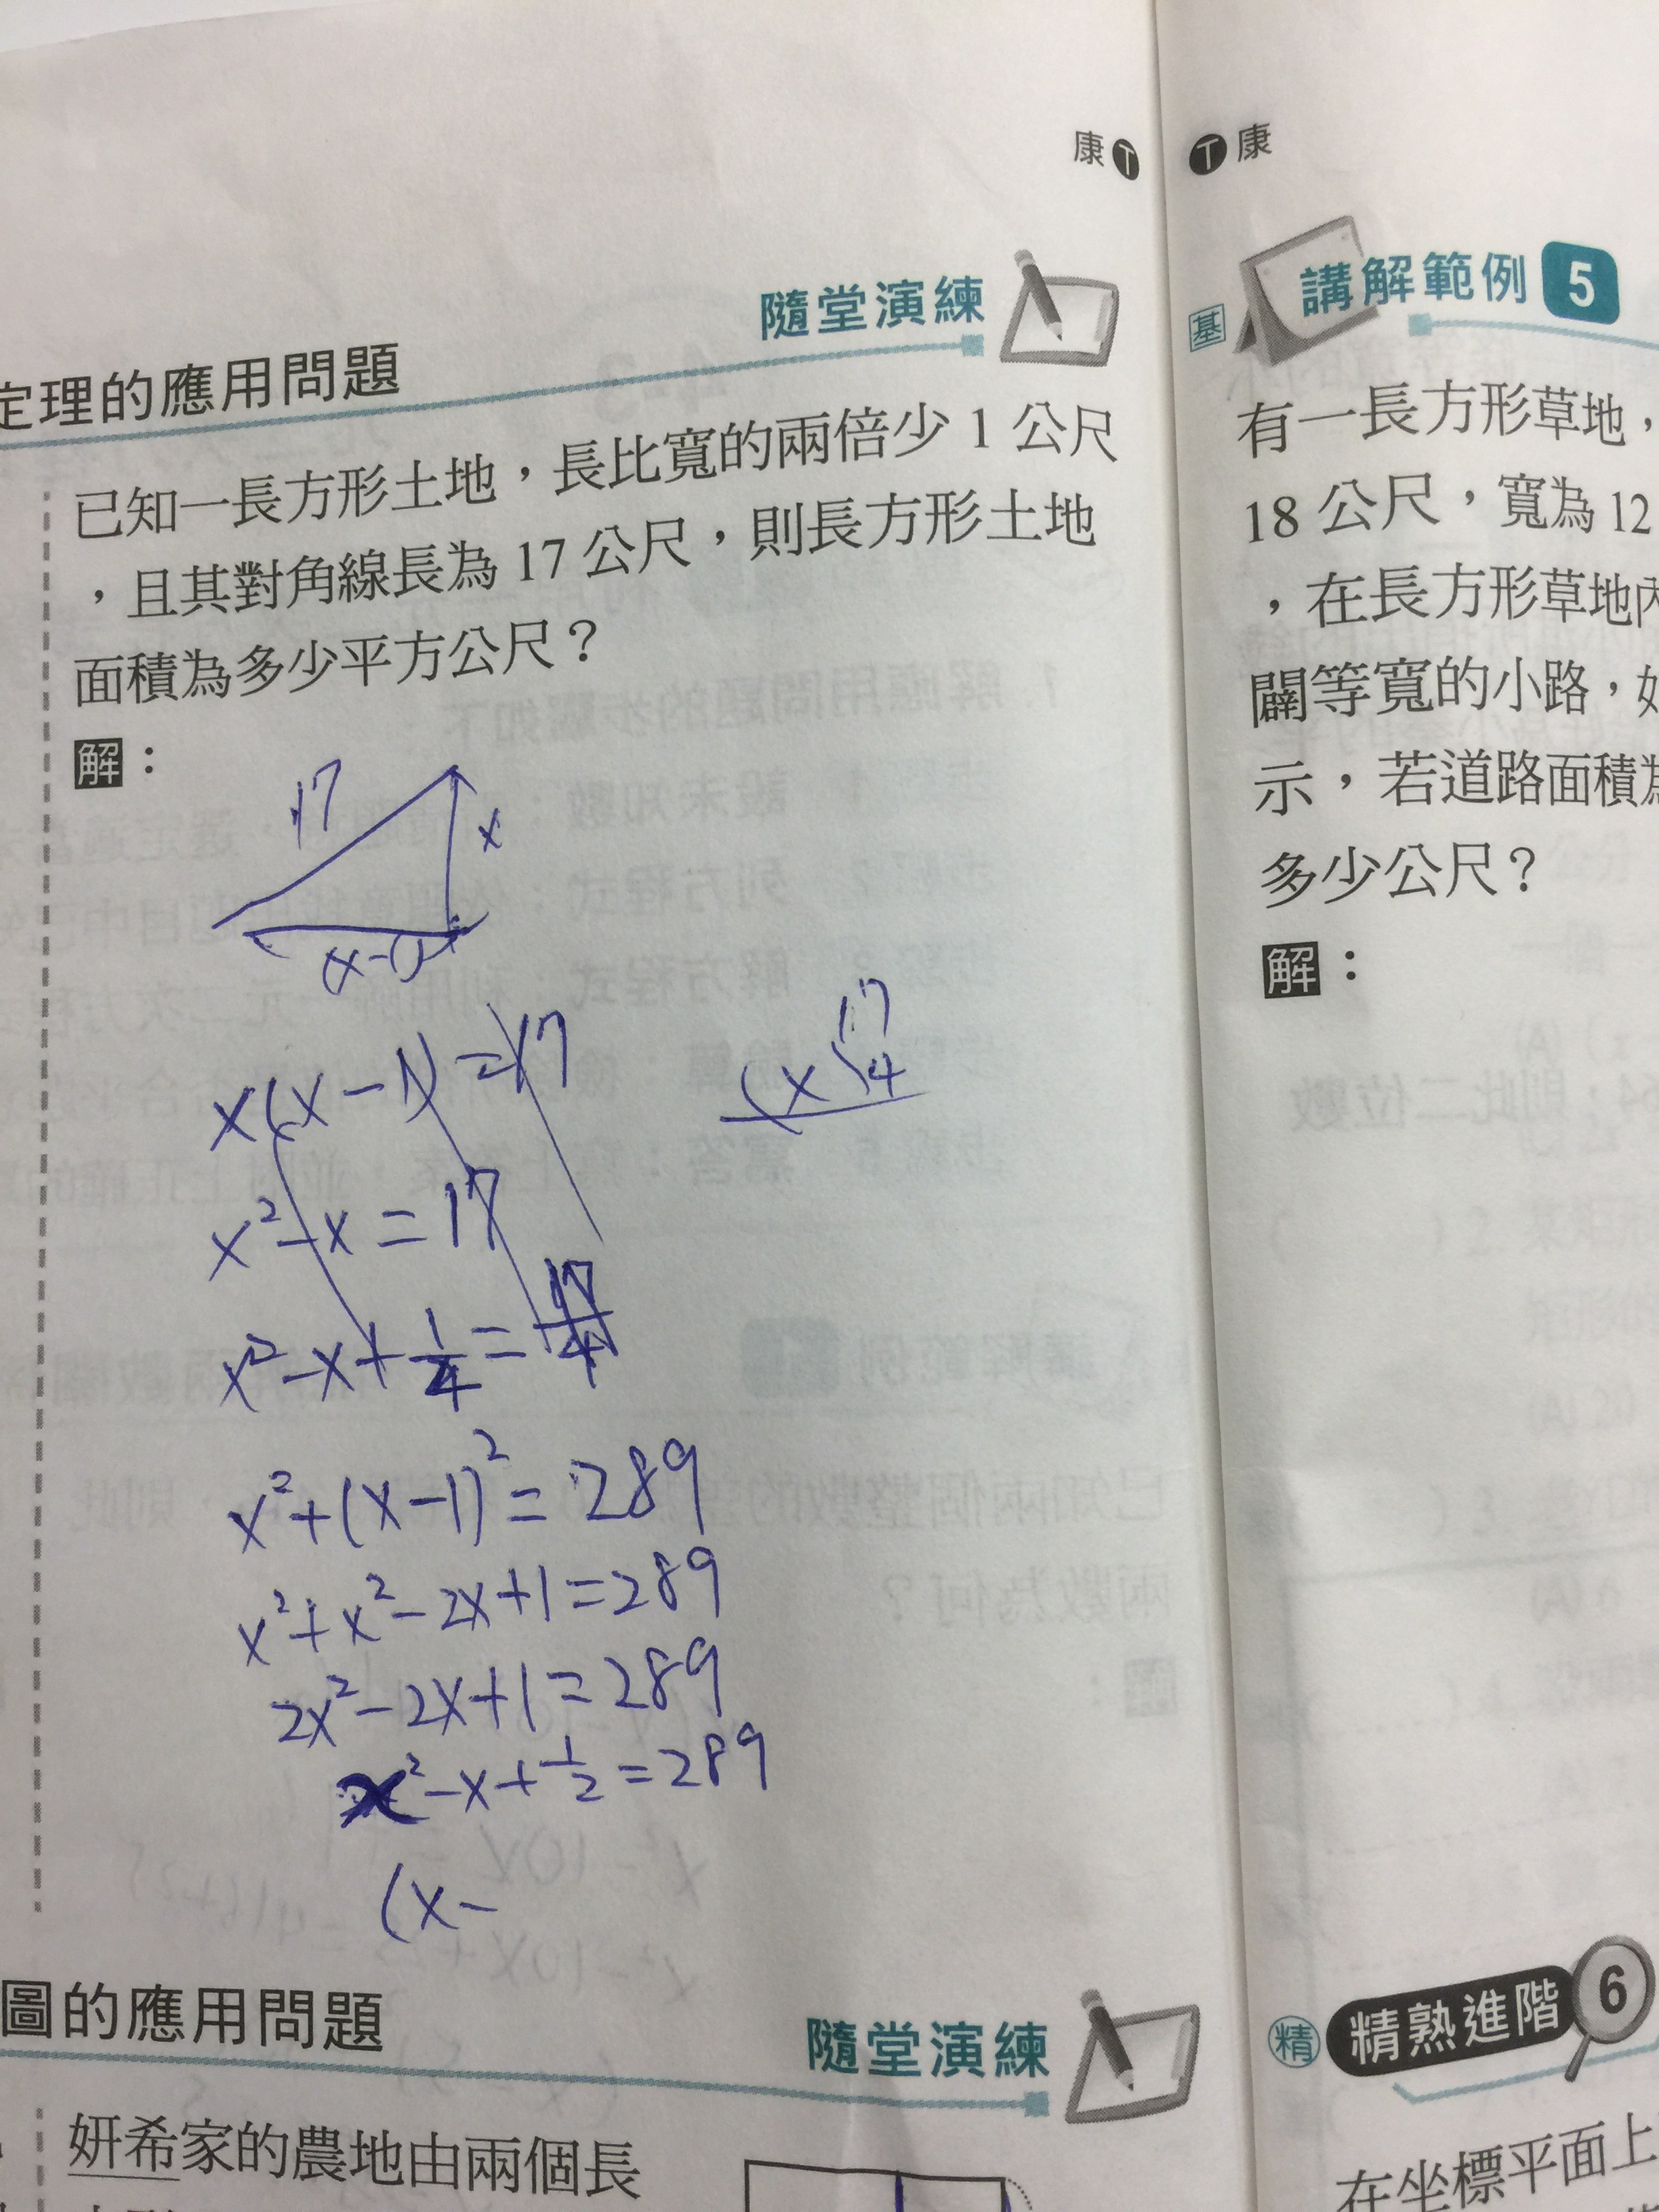 康 T
隨堂演練
定理的應用問題
已知一長方形土地，長比寬的兩倍少 1 公尺
，且其對角線長為 17 公尺，則長方形土地
面積為多少平方公尺？
解：
17
x
(x-1)
x(x-1)=17
x²-x=17
x²-x+1/4=17/4
17
(x) 4
x²+(x-1)²=289
x²+x²-2x+1=289
2x²-2x+1=289
x²-x+1/2=289
(x-
圖的應用問題
隨堂演練
妍希家的農地由兩個長
T 康
基
講解範例 5
有一長方形草地，
18 公尺，寬為 12
，在長方形草地內
闢等寬的小路，如
示，若道路面積為
多少公尺？
解：
精 精熟進階 6
在坐標平面上